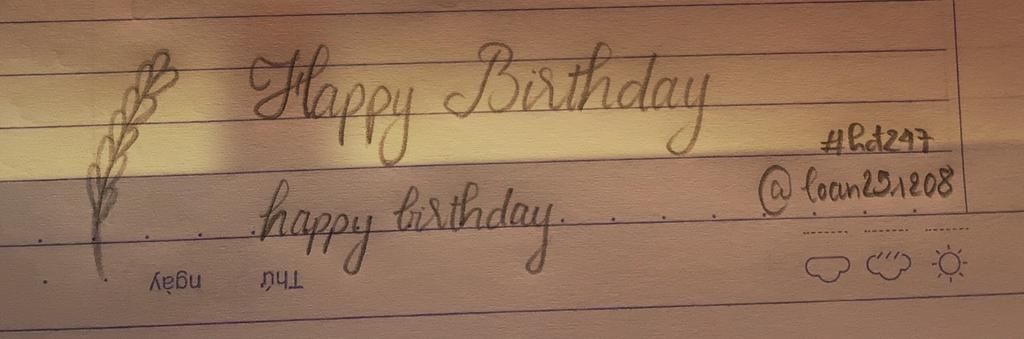 Happy Birthday
#hd247
@loan251208
happy birthday
Thứ
ngày